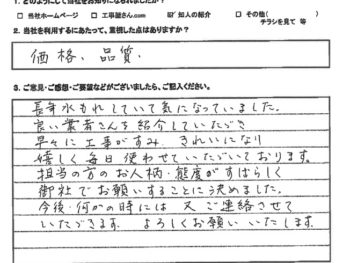 1. どのようにして当社をお知りになられましたか？
□ 当社ホームページ □ 工事蔵さん.com ☑ 知人の紹介 □ その他( )
チラシを見て 等
2. 当社を利用するにあたって、重視した点はありますか？
価格、品質.
3. ご意見・ご感想・ご要望などがございましたら、ご記入ください。
長年水もれしていて気になっていました。
良い業者さんを紹介していただき
早々に工事がすみ、きれいになり
嬉しく毎日使わせていただいております。
担当の方のお人柄・態度がすばらしく
御社でお願いすることに決めました。
今後・何かの時には 又ご連絡させて
いただきます. よろしくお願いいたします.